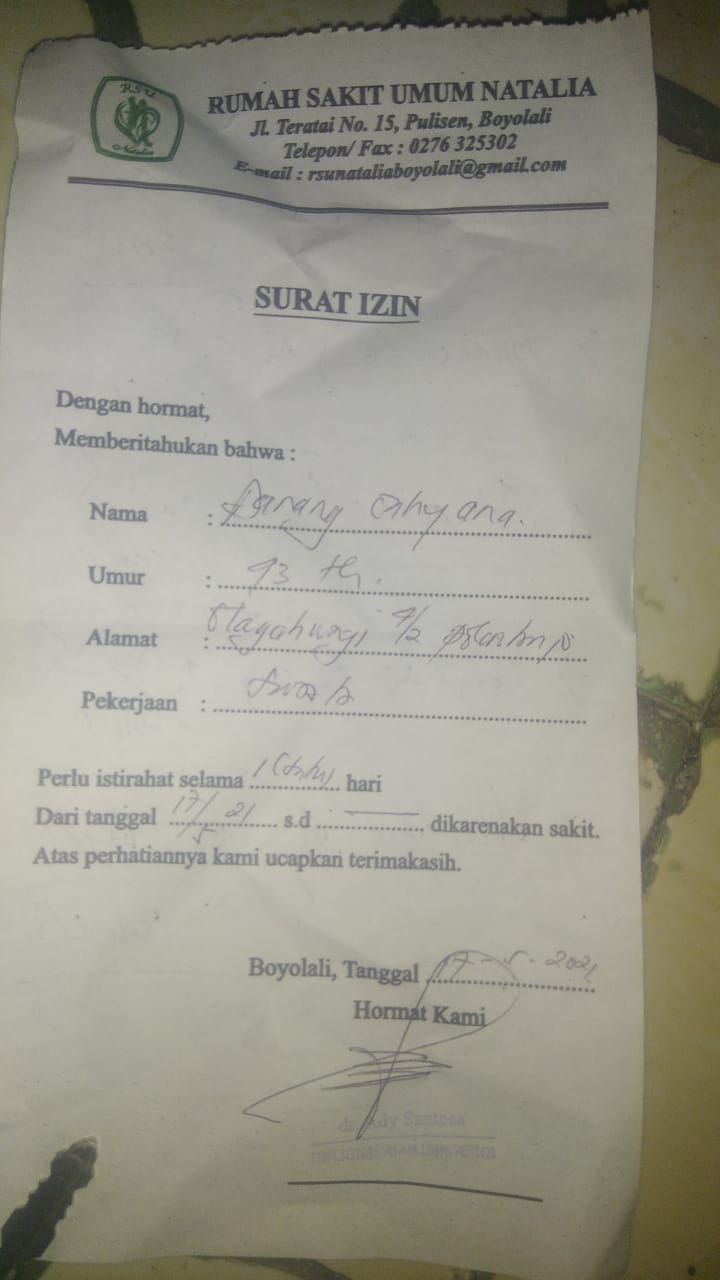 RSU
Natalia
RUMAH SAKIT UMUM NATALIA
Jl. Teratai No. 15, Pulisen, Boyolali
Telepon/ Fax : 0276 325302
E-mail : rsunataliaboyolali@gmail.com
SURAT IZIN
Dengan hormat,
Memberitahukan bahwa :
Nama : Danang
Umur : th.
Alamat :
Pekerjaan :
Perlu istirahat selama 1 hari
Dari tanggal 17/5 21 s.d — dikarenakan sakit.
Atas perhatiannya kami ucapkan terimakasih.
Boyolali, Tanggal 17-5-2021
Hormat Kami
dr. Ady Santosa